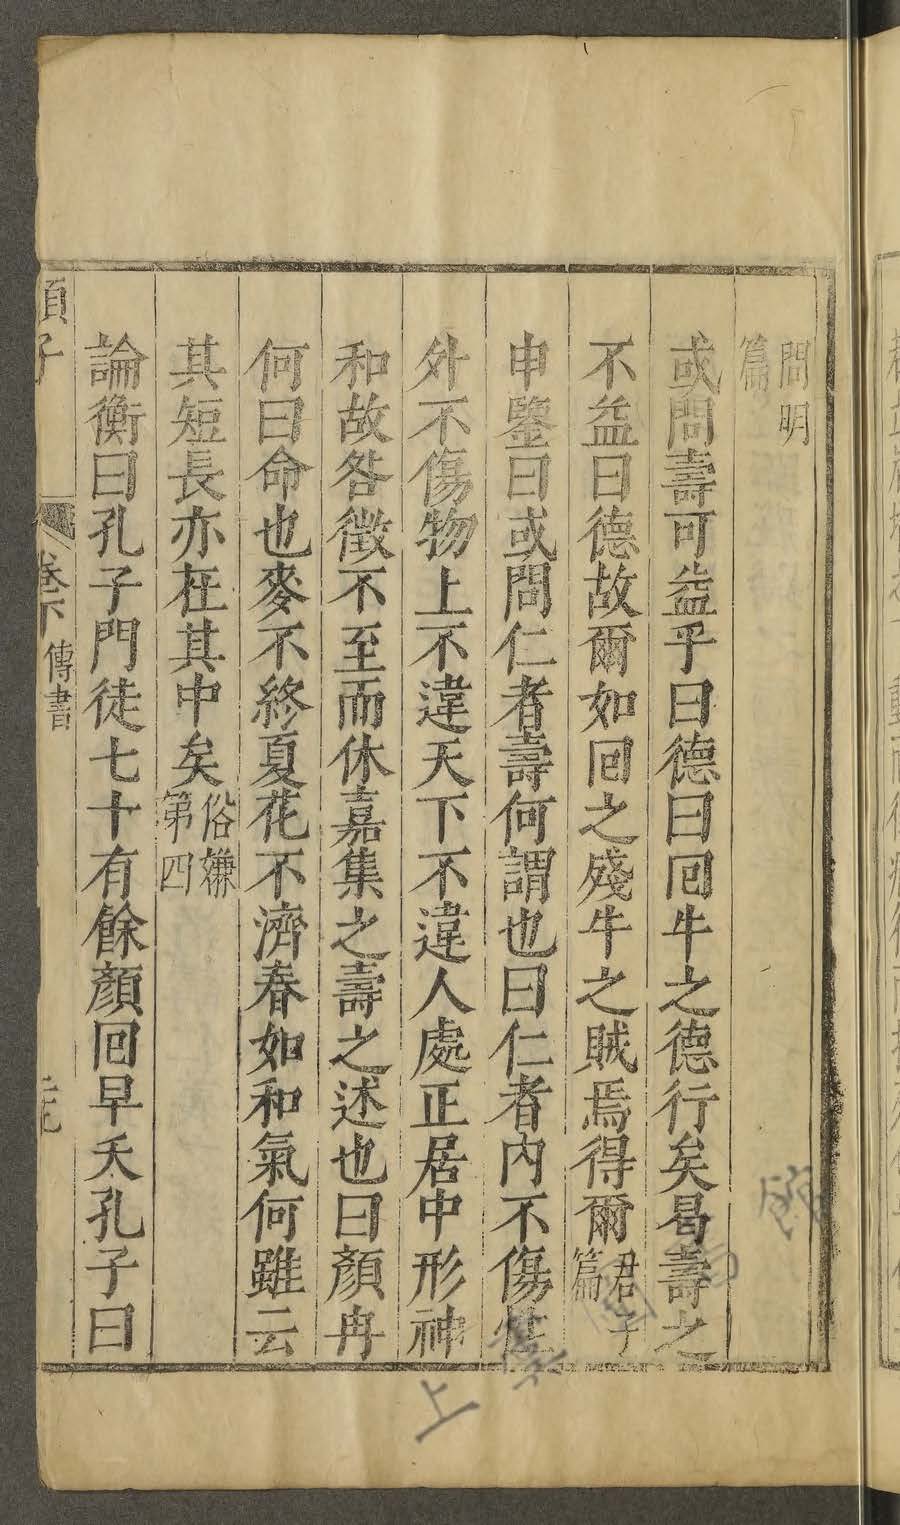 問明篇
或問壽可益乎曰德曰回牛之德行矣曷壽之
不益曰德故爾如回之殘牛之賊焉得爾君子篇
申鑒曰或問仁者壽何謂也曰仁者內不傷性
外不傷物上不違天下不違人處正居中形神
和故咎徵不至而休嘉集之壽之述也曰顏冉
何曰命也麥不終夏花不濟春如和氣何雖云
其短長亦在其中矣俗嫌第四
論衡曰孔子門徒七十有餘顏回早夭孔子曰
卷下 傳書
上 圖書館